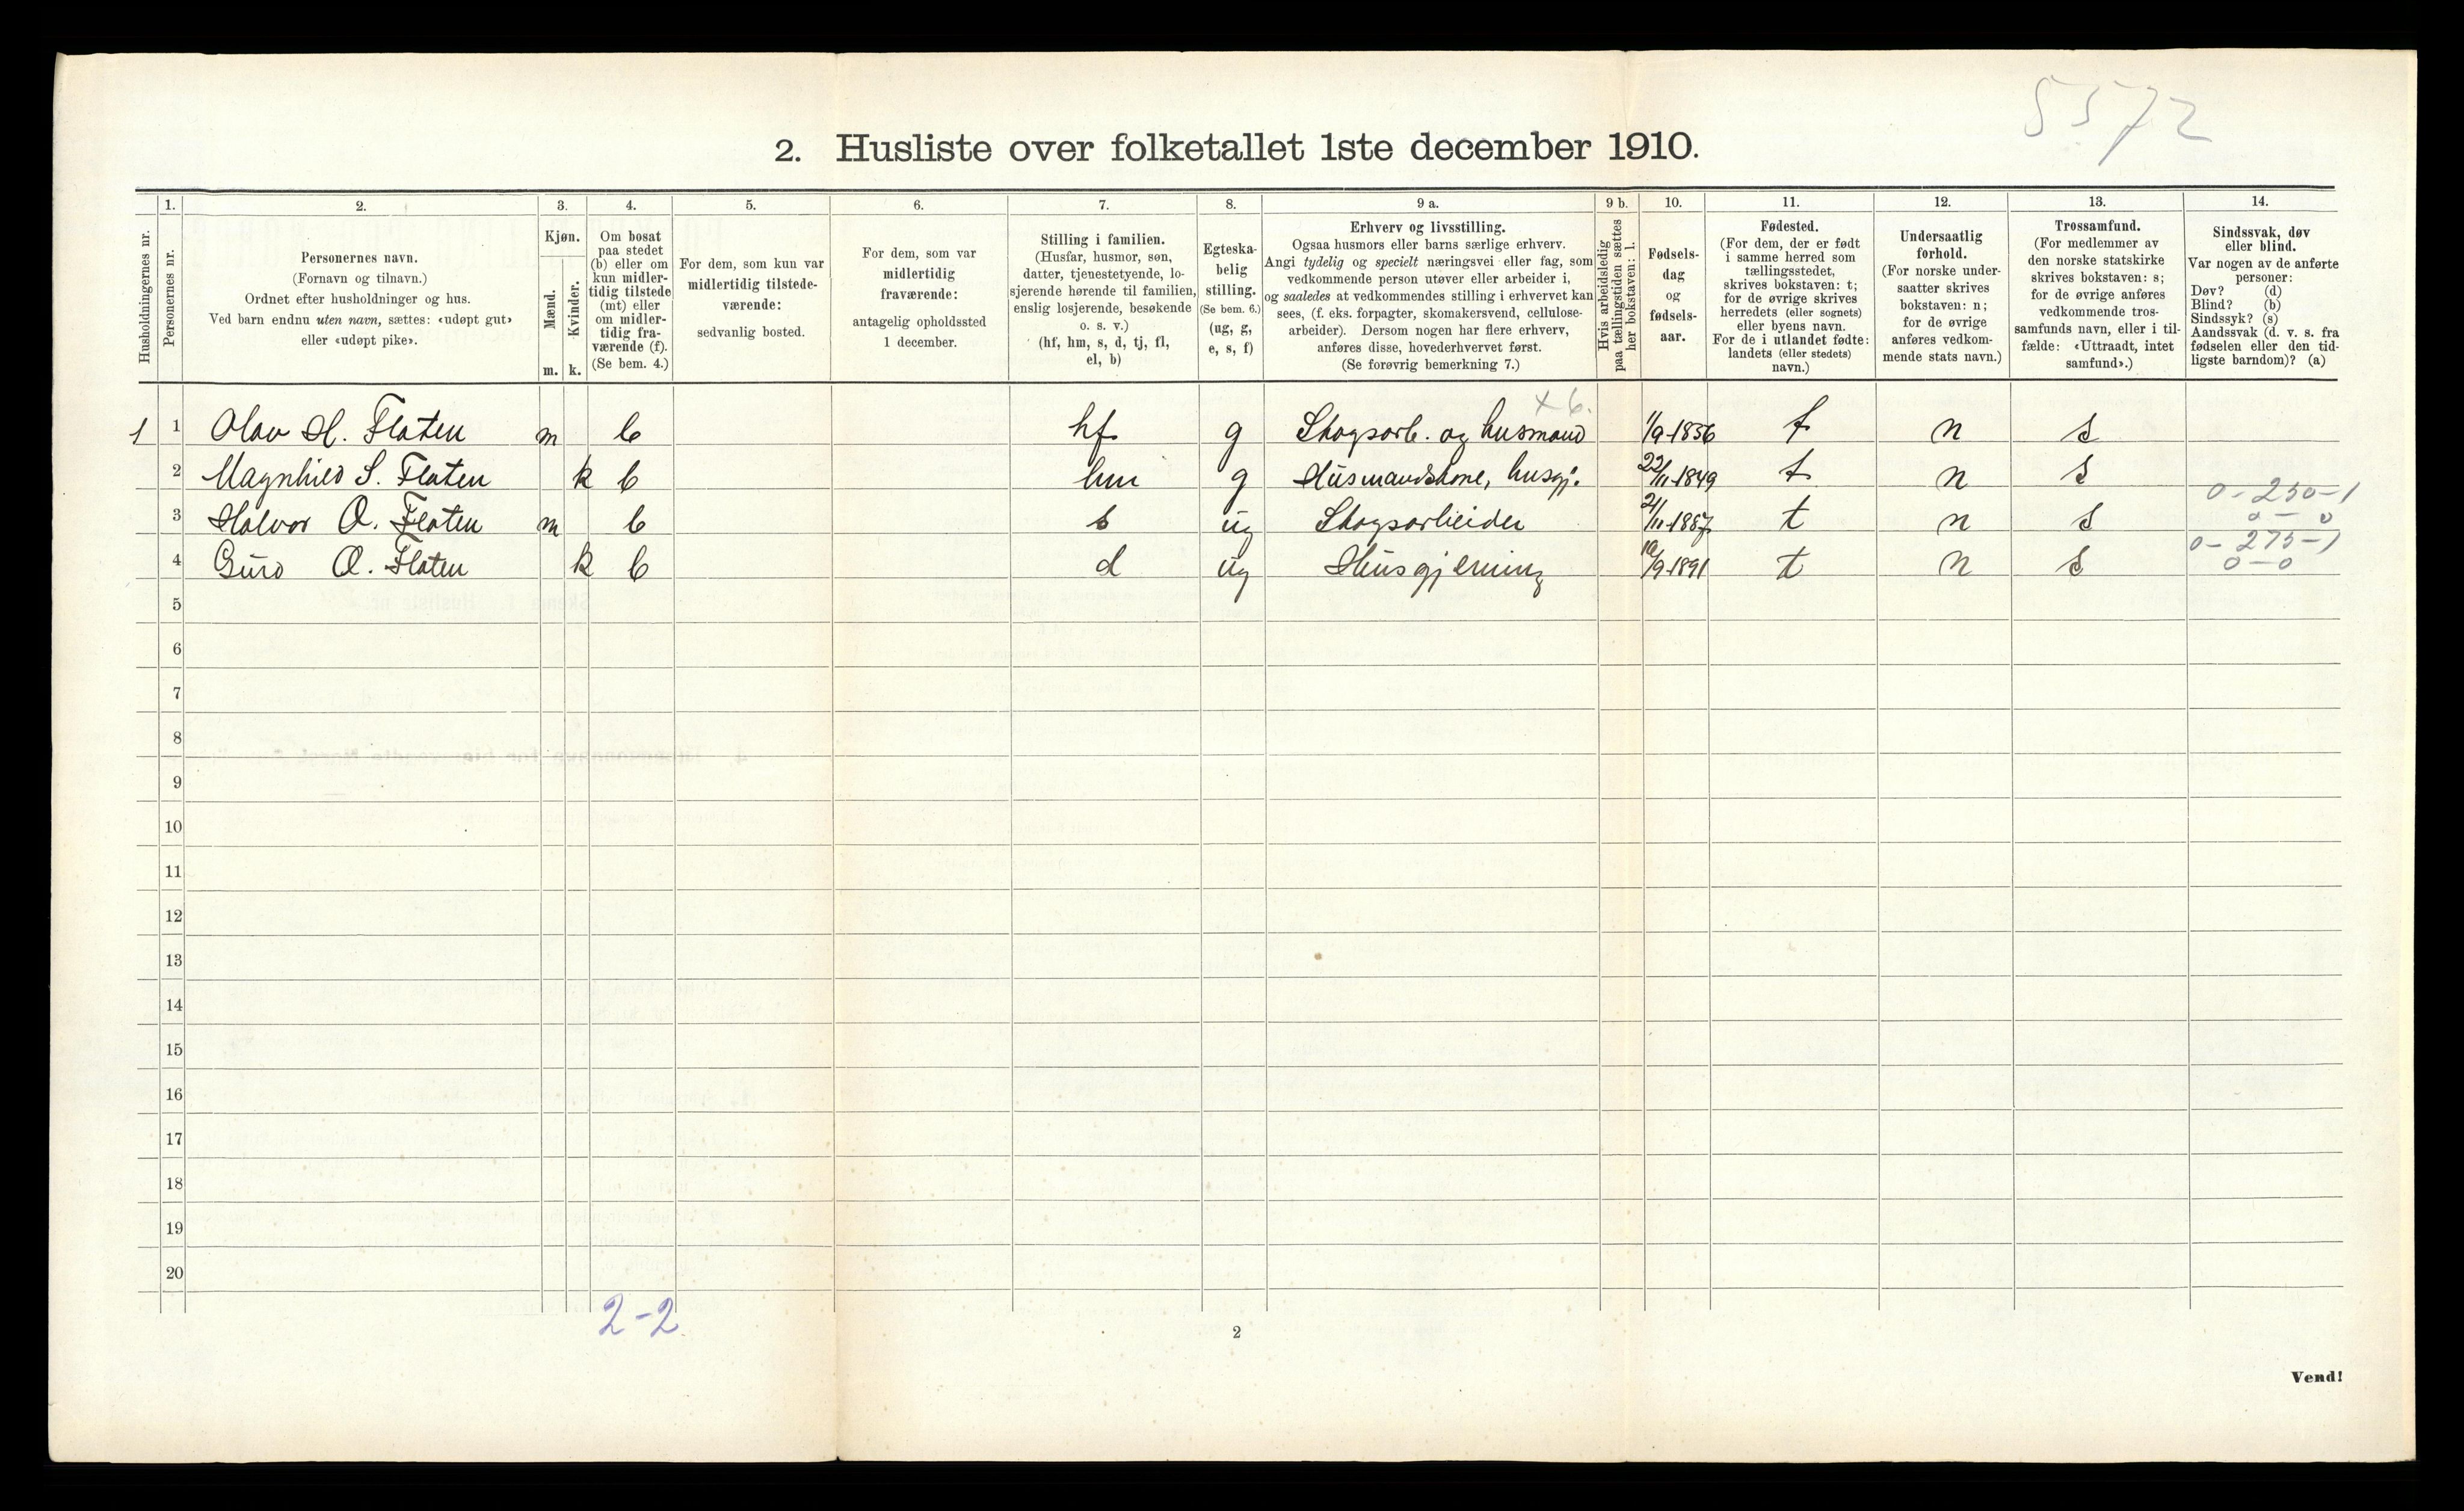 5572
2. Husliste over folketallet 1ste december 1910.
Husholdningernes nr.
1.
Personernes nr.
2.
Personernes navn.
(Fornavn og tilnavn.)
Ordnet efter husholdninger og hus.
Ved barn endnu uten navn, sættes: «udøpt gut»
eller «udøpt pike».
3.
Kjøn.
Mænd.
Kvinder.
m. k.
4.
Om bosat
paa stedet
(b) eller om
kun midler-
tidig tilstede
(mt) eller
om midler-
tidig fra-
værende (f).
(Se bem. 4.)
5.
For dem, som kun var
midlertidig tilstede-
værende:
sedvanlig bosted.
6.
For dem, som var
midlertidig
fraværende:
antagelig opholdssted
1 december.
7.
Stilling i familien.
(Husfar, husmor, søn,
datter, tjenestetyende, lo-
sjerende hørende til familien,
enslig losjerende, besøkende
o. s. v.)
(hf, hm, s, d, tj, fl,
el, b)
8.
Egteska-
belig
stilling.
(Se bem. 6.)
(ug, g,
e, s, f)
9 a.
Erhverv og livsstilling.
Ogsaa husmors eller barns særlige erhverv.
Angi tydelig og specielt næringsvei eller fag, som
vedkommende person utøver eller arbeider i,
og saaledes at vedkommendes stilling i erhvervet kan
sees, (f. eks. forpagter, skomakersvend, cellulose-
arbeider). Dersom nogen har flere erhverv,
anføres disse, hovederhvervet først.
(Se forøvrig bemerkning 7.)
9 b.
Hvis arbeidsledig
paa tællingstiden sættes
her bokstaven: l.
10.
Fødsels-
dag
og
fødsels-
aar.
11.
Fødested.
(For dem, der er født
i samme herred som
tællingsstedet,
skrives bokstaven: t;
for de øvrige skrives
herredets (eller sognets)
eller byens navn.
For de i utlandet fødte:
landets (eller stedets)
navn.)
12.
Undersaatlig
forhold.
(For norske under-
saatter skrives
bokstaven: n;
for de øvrige
anføres vedkom-
mende stats navn.)
13.
Trossamfund.
(For medlemmer av
den norske statskirke
skrives bokstaven: s;
for de øvrige anføres
vedkommende tros-
samfunds navn, eller i til-
fælde: «Uttraadt, intet
samfund».)
14.
Sindssvak, døv
eller blind.
Var nogen av de anførte
personer:
Døv? (d)
Blind? (b)
Sindssyk? (s)
Aandssvak (d. v. s. fra
fødselen eller den tid-
ligste barndom)? (a)
x 6.
1 1 Olav H. Flaten m b hf g Skogsarb. og husmand 1/9-1856 t n s
2 Magnhild S. Flaten k b hm g Husmandskone, husgj. 22/11-1849 t n s
0-250-1
3 Halvor O. Flaten m b s ug Skogsarbeider 21/11-1887 t n s 0 - 0
0-275-1
4 Guro O. Flaten k b d ug Husgjerning 10/9-1891 t n s 0-0
5
6
7
8
9
10
11
12
13
14
15
16
17
18
19
20
2-2
2
Vend!